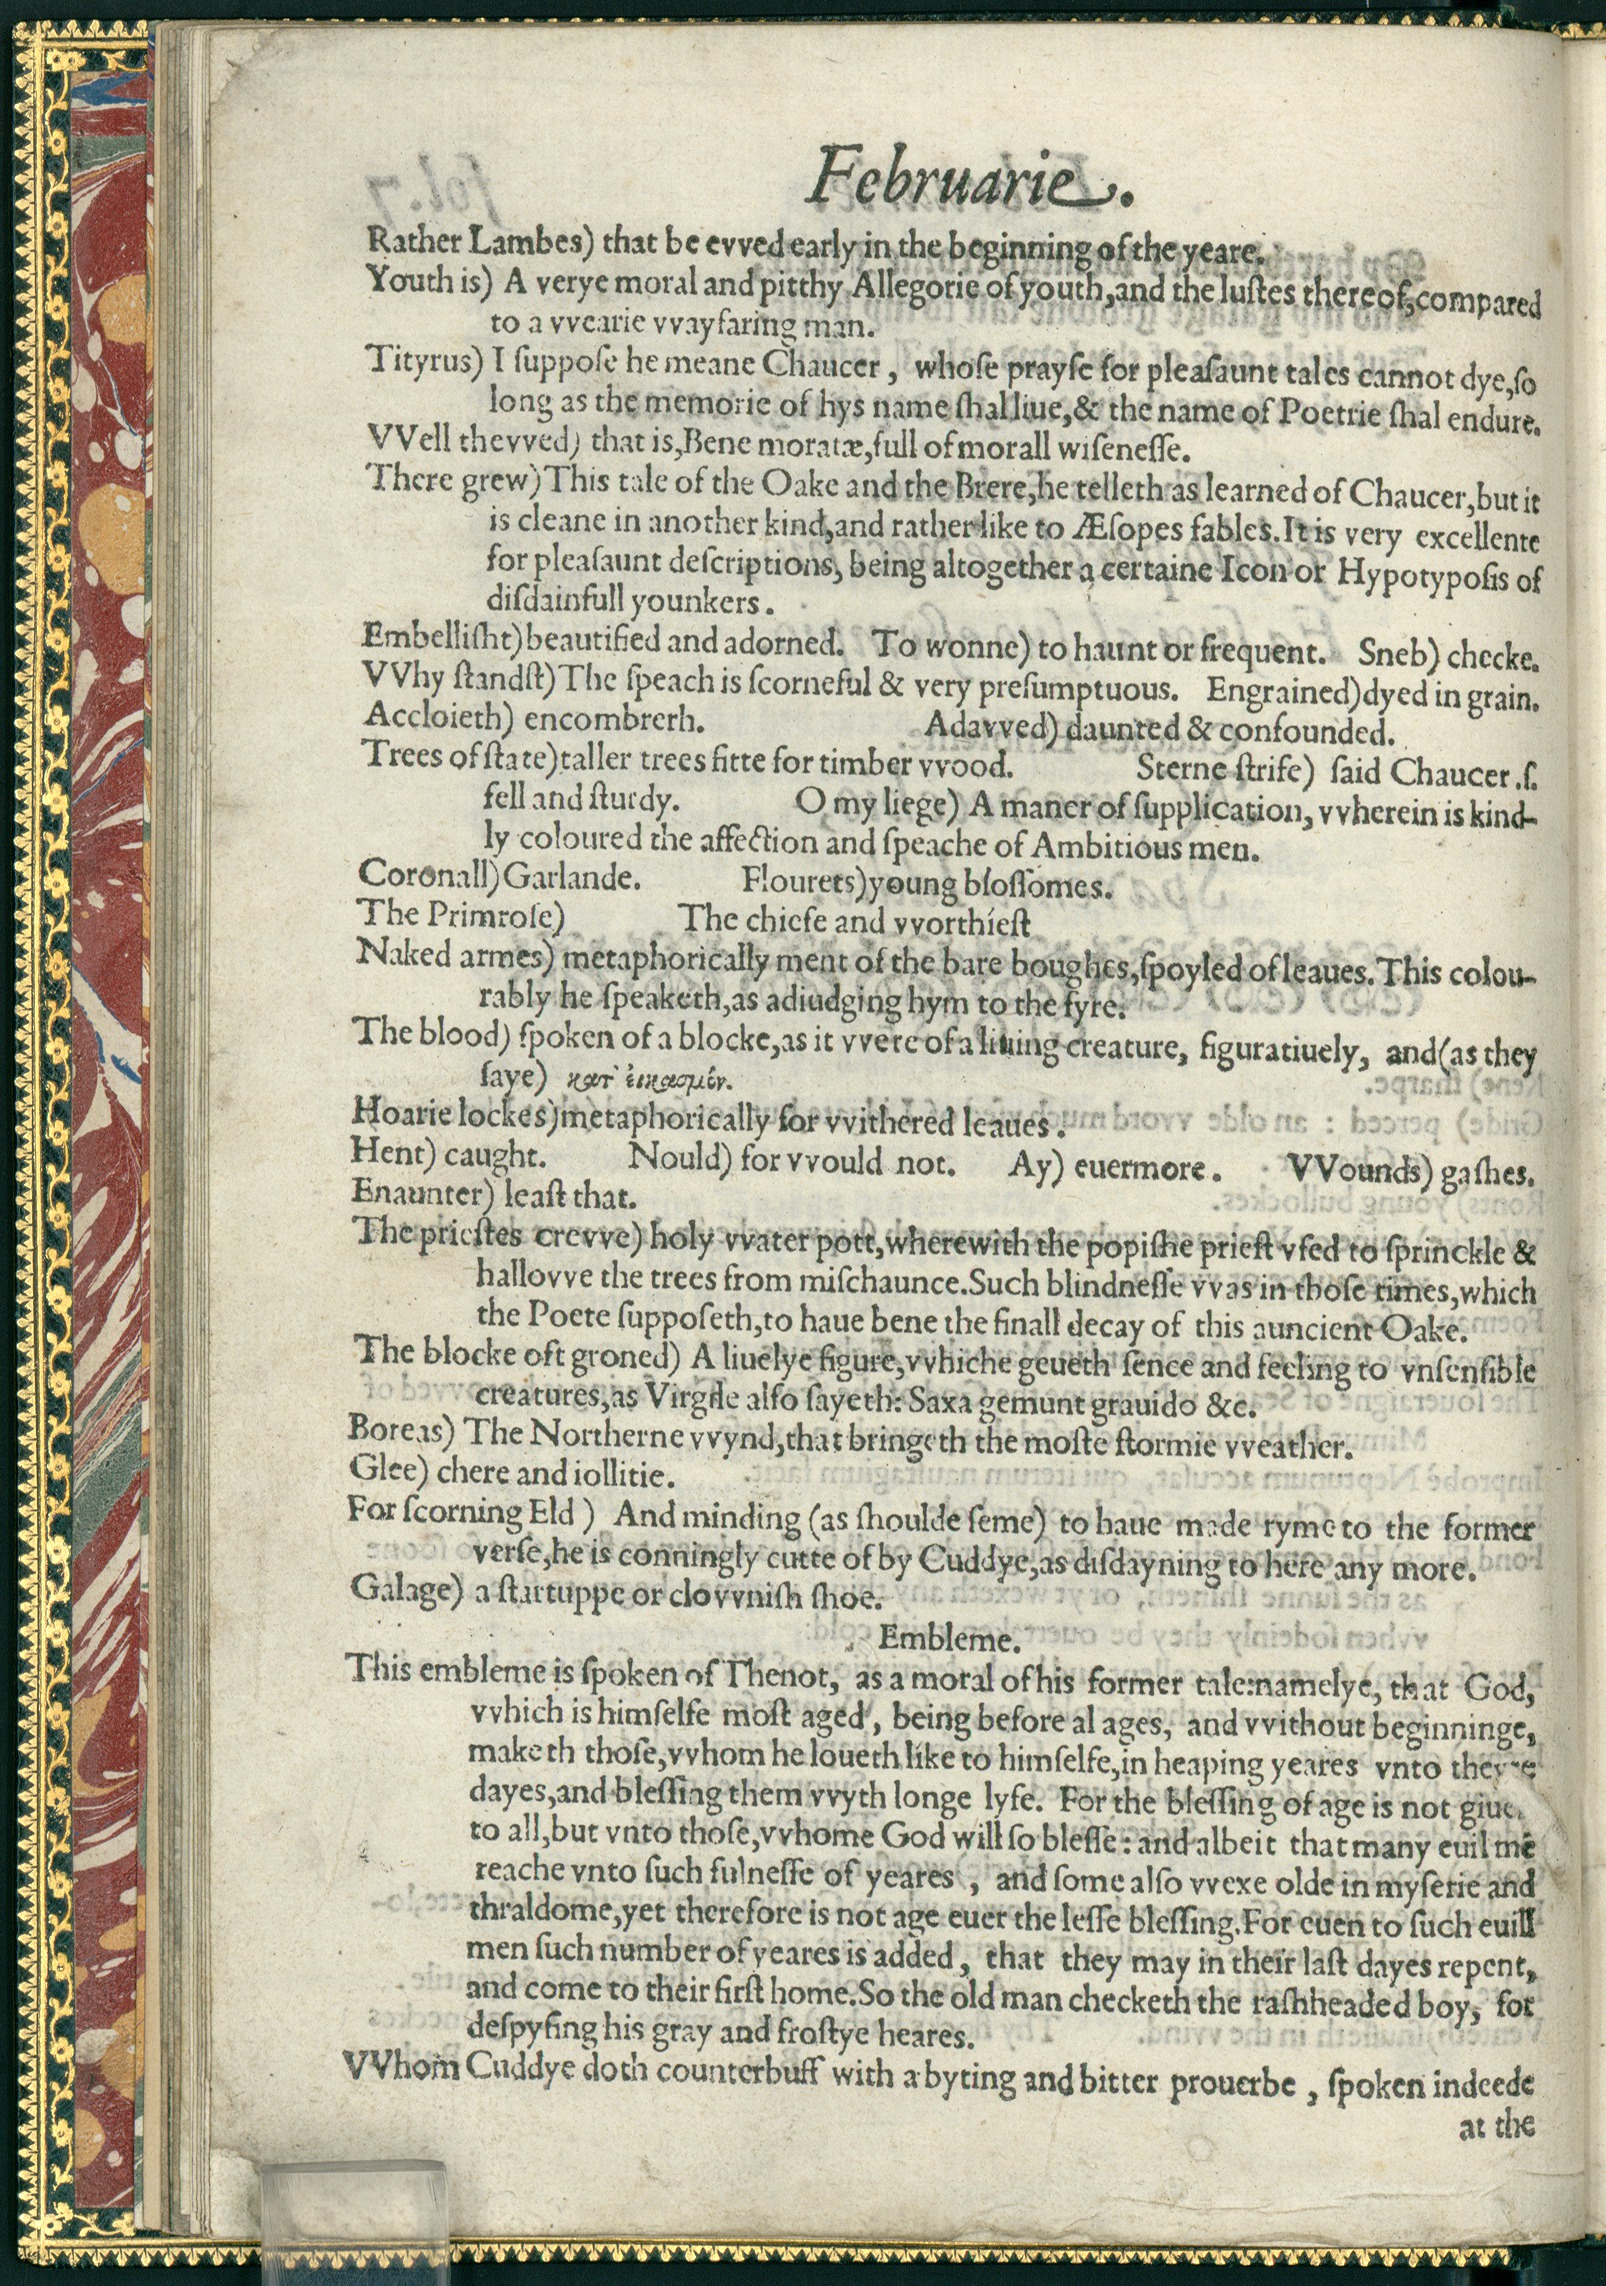 Februarie.
Rather Lambes) that be evved early in the beginning of the yeare.
Youth is) A verye moral and pitthy Allegorie of youth,and the luſtes thereof,compared
to a vvearie vvayfaring man.
Tityrus) I ſuppoſe he meane Chaucer, whoſe prayſe for pleaſaunt tales cannot dye,ſo
long as the memorie of hys name ſhal liue,& the name of Poetrie ſhal endure.
VVell thevved) that is,Bene moratæ,full of morall wiſeneſſe.
There grew) This tale of the Oake and the Brere,he telleth as learned of Chaucer,but it
is cleane in another kind,and rather like to Æſopes fables.It is very excellente
for pleaſaunt deſcriptions, being altogether a certaine Icon or Hypotypoſis of
diſdainfull younkers.
Embelliſht) beautified and adorned. To wonne) to haunt or frequent. Sneb) checke.
VVhy ſtandſt) The ſpeach is ſcorneful & very preſumptuous. Engrained) dyed in grain.
Accloieth) encombreth. Adavved) daunted & confounded.
Trees of ſtate) taller trees fitte for timber vvood. Sterne ſtrife) ſaid Chaucer .ſ.
fell and ſturdy. O my liege) A maner of ſupplication, vvherein is kind-
ly coloured the affection and ſpeache of Ambitious men.
Coronall) Garlande. Flourets) young bloſſomes.
The Primroſe) The chiefe and vvorthieſt
Naked armes) metaphorically ment of the bare boughes,ſpoyled of leaues. This colou-
rably he ſpeaketh,as adiudging hym to the fyre.
The blood) ſpoken of a blocke,as it vvere of a liuing creature, figuratiuely, and(as they
ſaye) κατ' εἰκασμόν.
Hoarie lockes) metaphorically for vvithered leaues.
Hent) caught. Nould) for vvould not. Ay) euermore. VVounds) gaſhes.
Enaunter) leaſt that.
The prieſtes crevve) holy vvater pott,wherewith the popiſhe prieſt vſed to ſprinckle &
hallovve the trees from miſchaunce.Such blindneſſe vvas in thoſe times,which
the Poete ſuppoſeth,to haue bene the finall decay of this auncient Oake.
The blocke oft groned) A liuelye figure,vvhiche geueth ſence and feeling to vnſenſible
creatures,as Virgile alſo ſayeth: Saxa gemunt grauido &c.
Boreas) The Northerne vvynd,that bringeth the moſte ſtormie vveather.
Glee) chere and iollitie.
For ſcorning Eld) And minding (as ſhoulde ſeme) to haue made ryme to the former
verſe,he is conningly cutte of by Cuddye,as diſdayning to here any more.
Galage) a ſtartuppe or clovvniſh ſhoe.
Embleme.
This embleme is ſpoken of Thenot, as a moral of his former tale:namelye, that God,
vvhich is himſelfe moſt aged, being before al ages, and vvithout beginninge,
maketh thoſe,vvhom he loueth like to himſelfe,in heaping yeares vnto theyre
dayes,and bleſſing them vvyth longe lyfe. For the bleſſing of age is not giue
to all,but vnto thoſe,vvhome God will ſo bleſſe: and albeit that many euil mē
reache vnto ſuch fulneſſe of yeares, and ſome alſo vvexe olde in myſerie and
thraldome,yet therefore is not age euer the leſſe bleſſing.For euen to ſuch euill
men ſuch number of yeares is added, that they may in their laſt dayes repent,
and come to their firſt home.So the old man checketh the raſhheaded boy, for
deſpyſing his gray and froſtye heares.
VVhom Cuddye doth counterbuff with a byting and bitter prouerbe, ſpoken indeede
at the